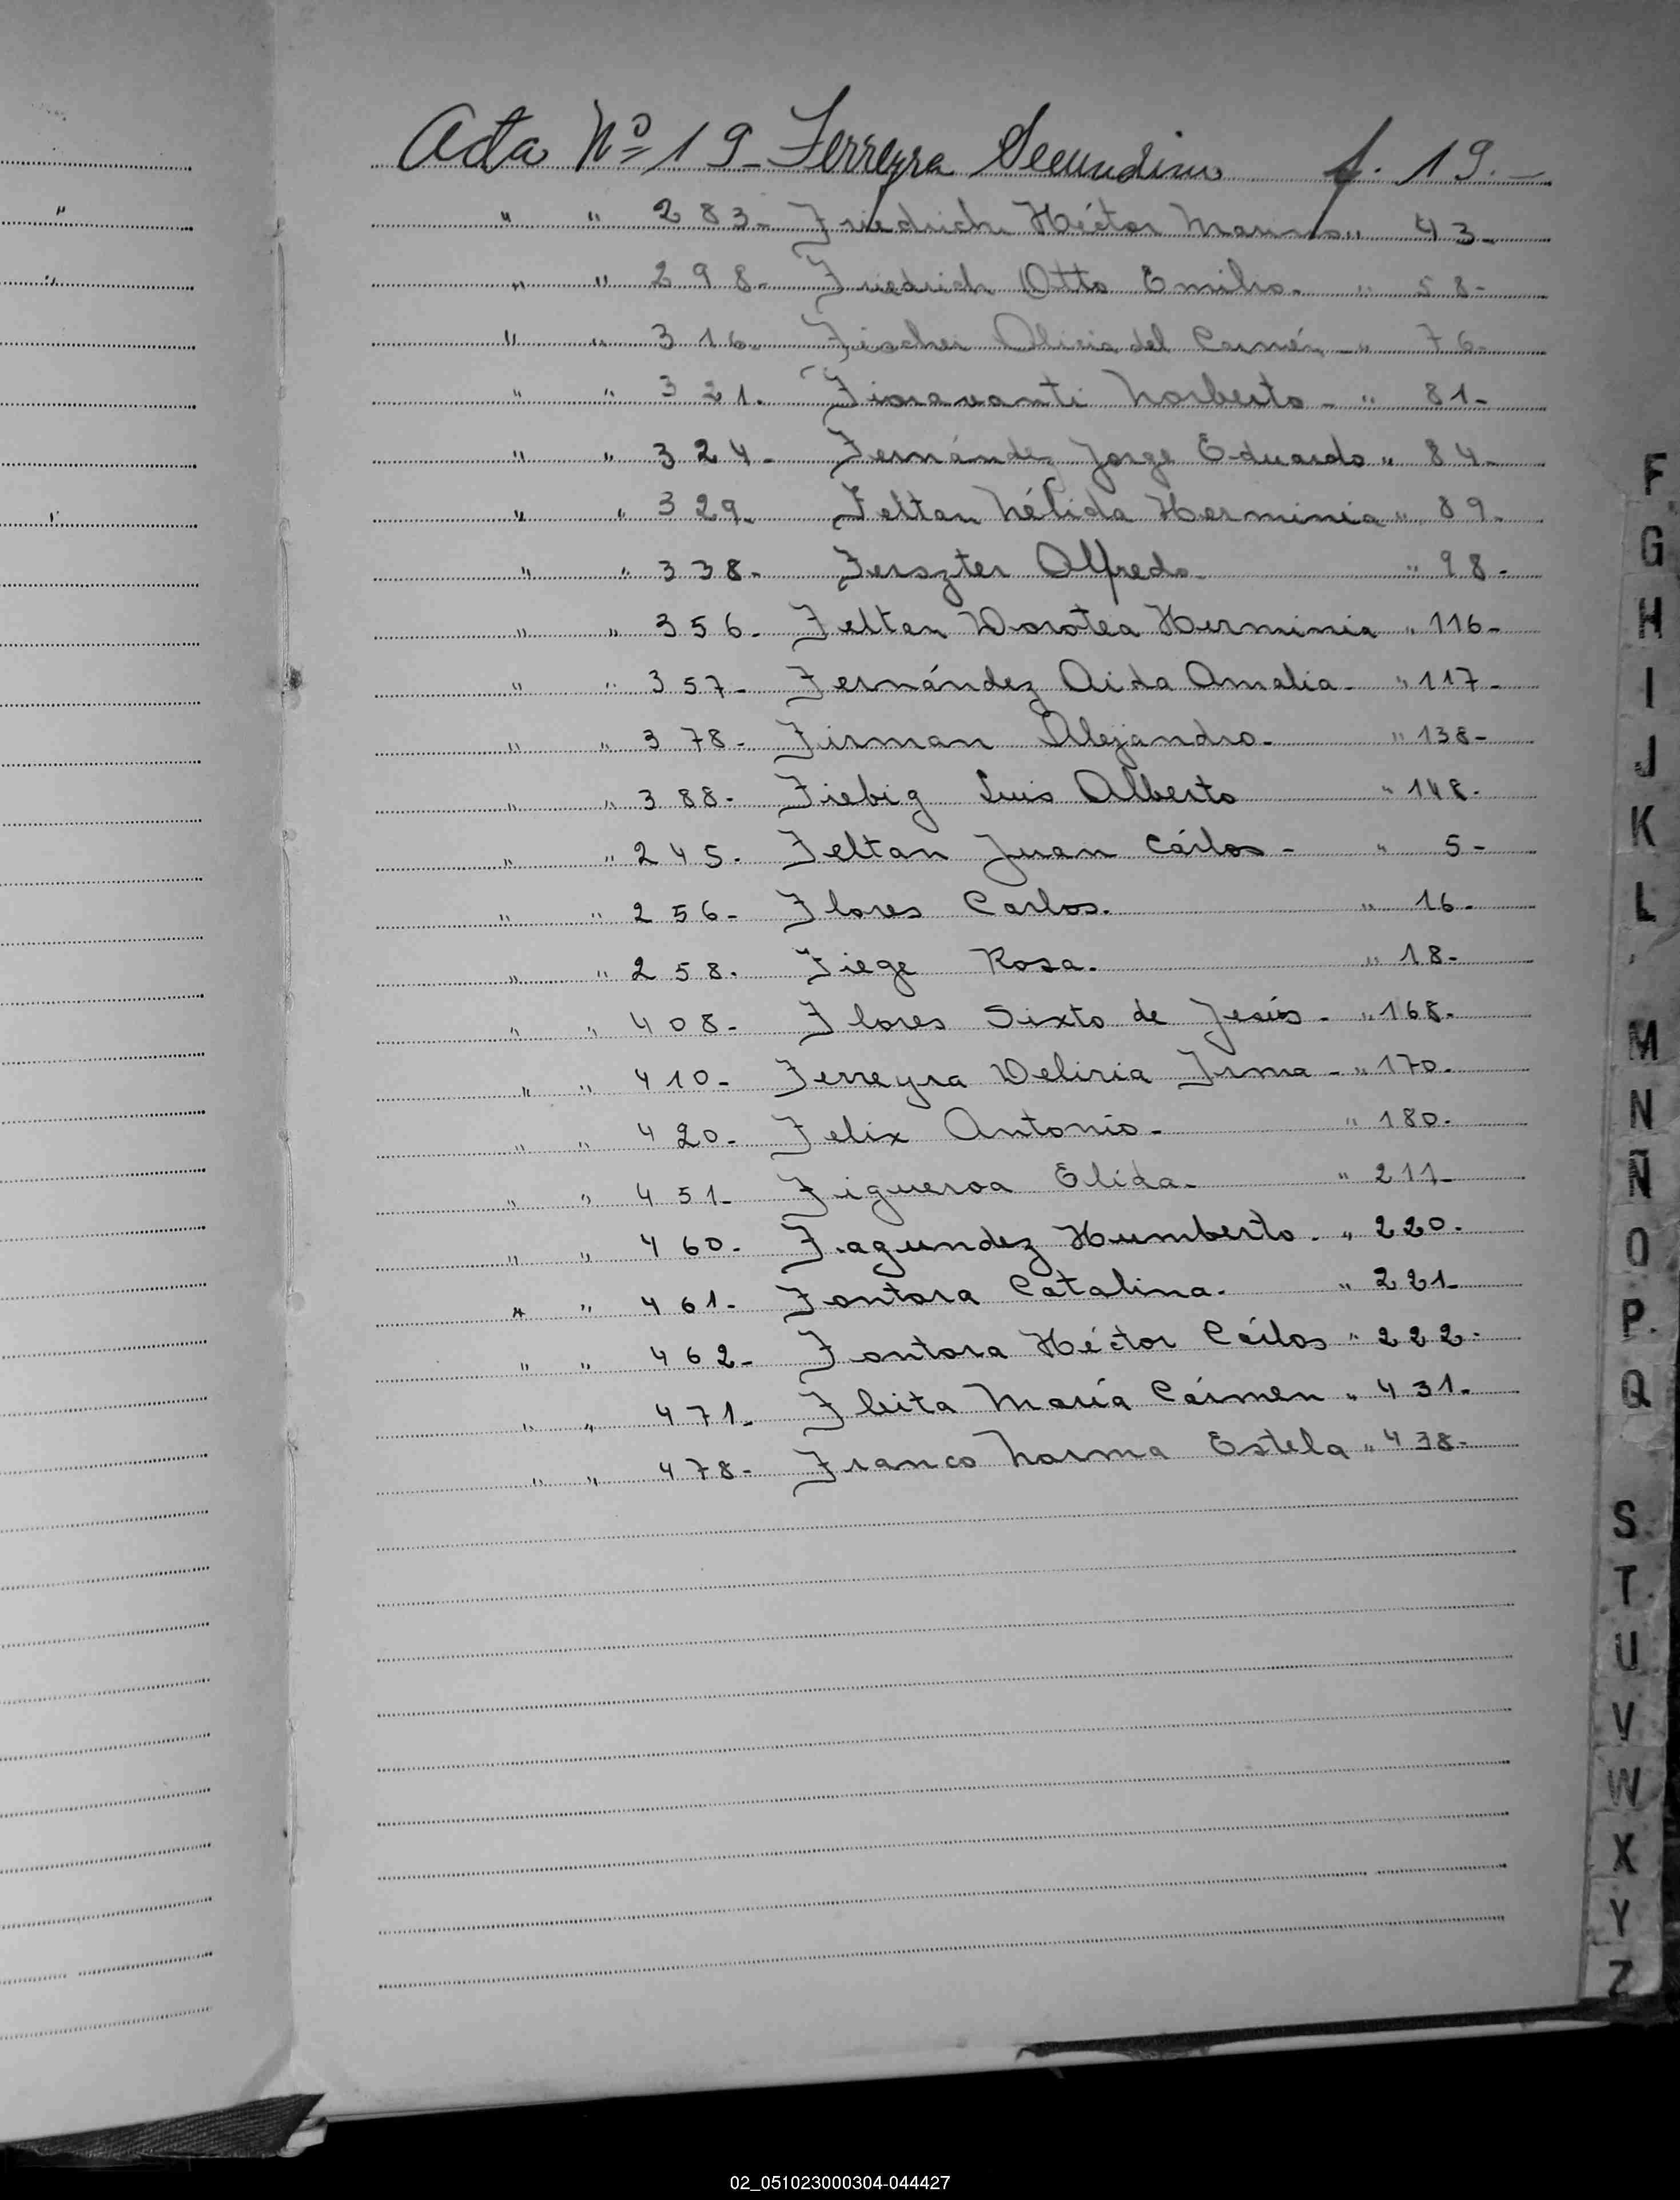 Acta Nº 19- Ferreyra Secundino f. 19.-
" " 283- Friedrich Héctor " 43-
" " 298- Friedrich Otto Emilio- " 58-
" " 316- Fischer Alicia del Carmén- " 76-
" " 321. Fioravanti Norberto- " 81-
" " 324- Fernández Jorge Eduardo " 84-
" " 329- Feltan Nélida Herminia " 89-
" " 338- Ferszter Alfredo- " 98-
" " 356- Feltan Dorotea Herminia " 116-
" " 357- Fernández Aida Amalia- " 117-
" " 378- Firman Alejandro- " 138-
" " 388- Fiebig Luis Alberto " 148-
" " 245- Feltan Juan Cárlos- " 5-
" " 256- Flores Carlos. " 16-
" " 258. Fiege Rosa. " 18-
" " 408- Flores Sixto de Jesús- " 168-
" " 410- Ferreyra Deliria Irma- " 170-
" " 420- Felix Antonio- " 180-
" " 451- Figueroa Elida- " 211-
" " 460- Fagundez Humberto- " 220-
" " 461- Fontora Catalina. " 221-
" " 462- Fontora Héctor Cárlos " 222-
" " 471- Fleita María Cármen " 431-
" " 478- Franco Norma Estela " 438-
F
G
H
I
J
K
L
M
N
Ñ
O
P
Q
S
T
U
V
W
X
Y
Z
02_051023000304-044427